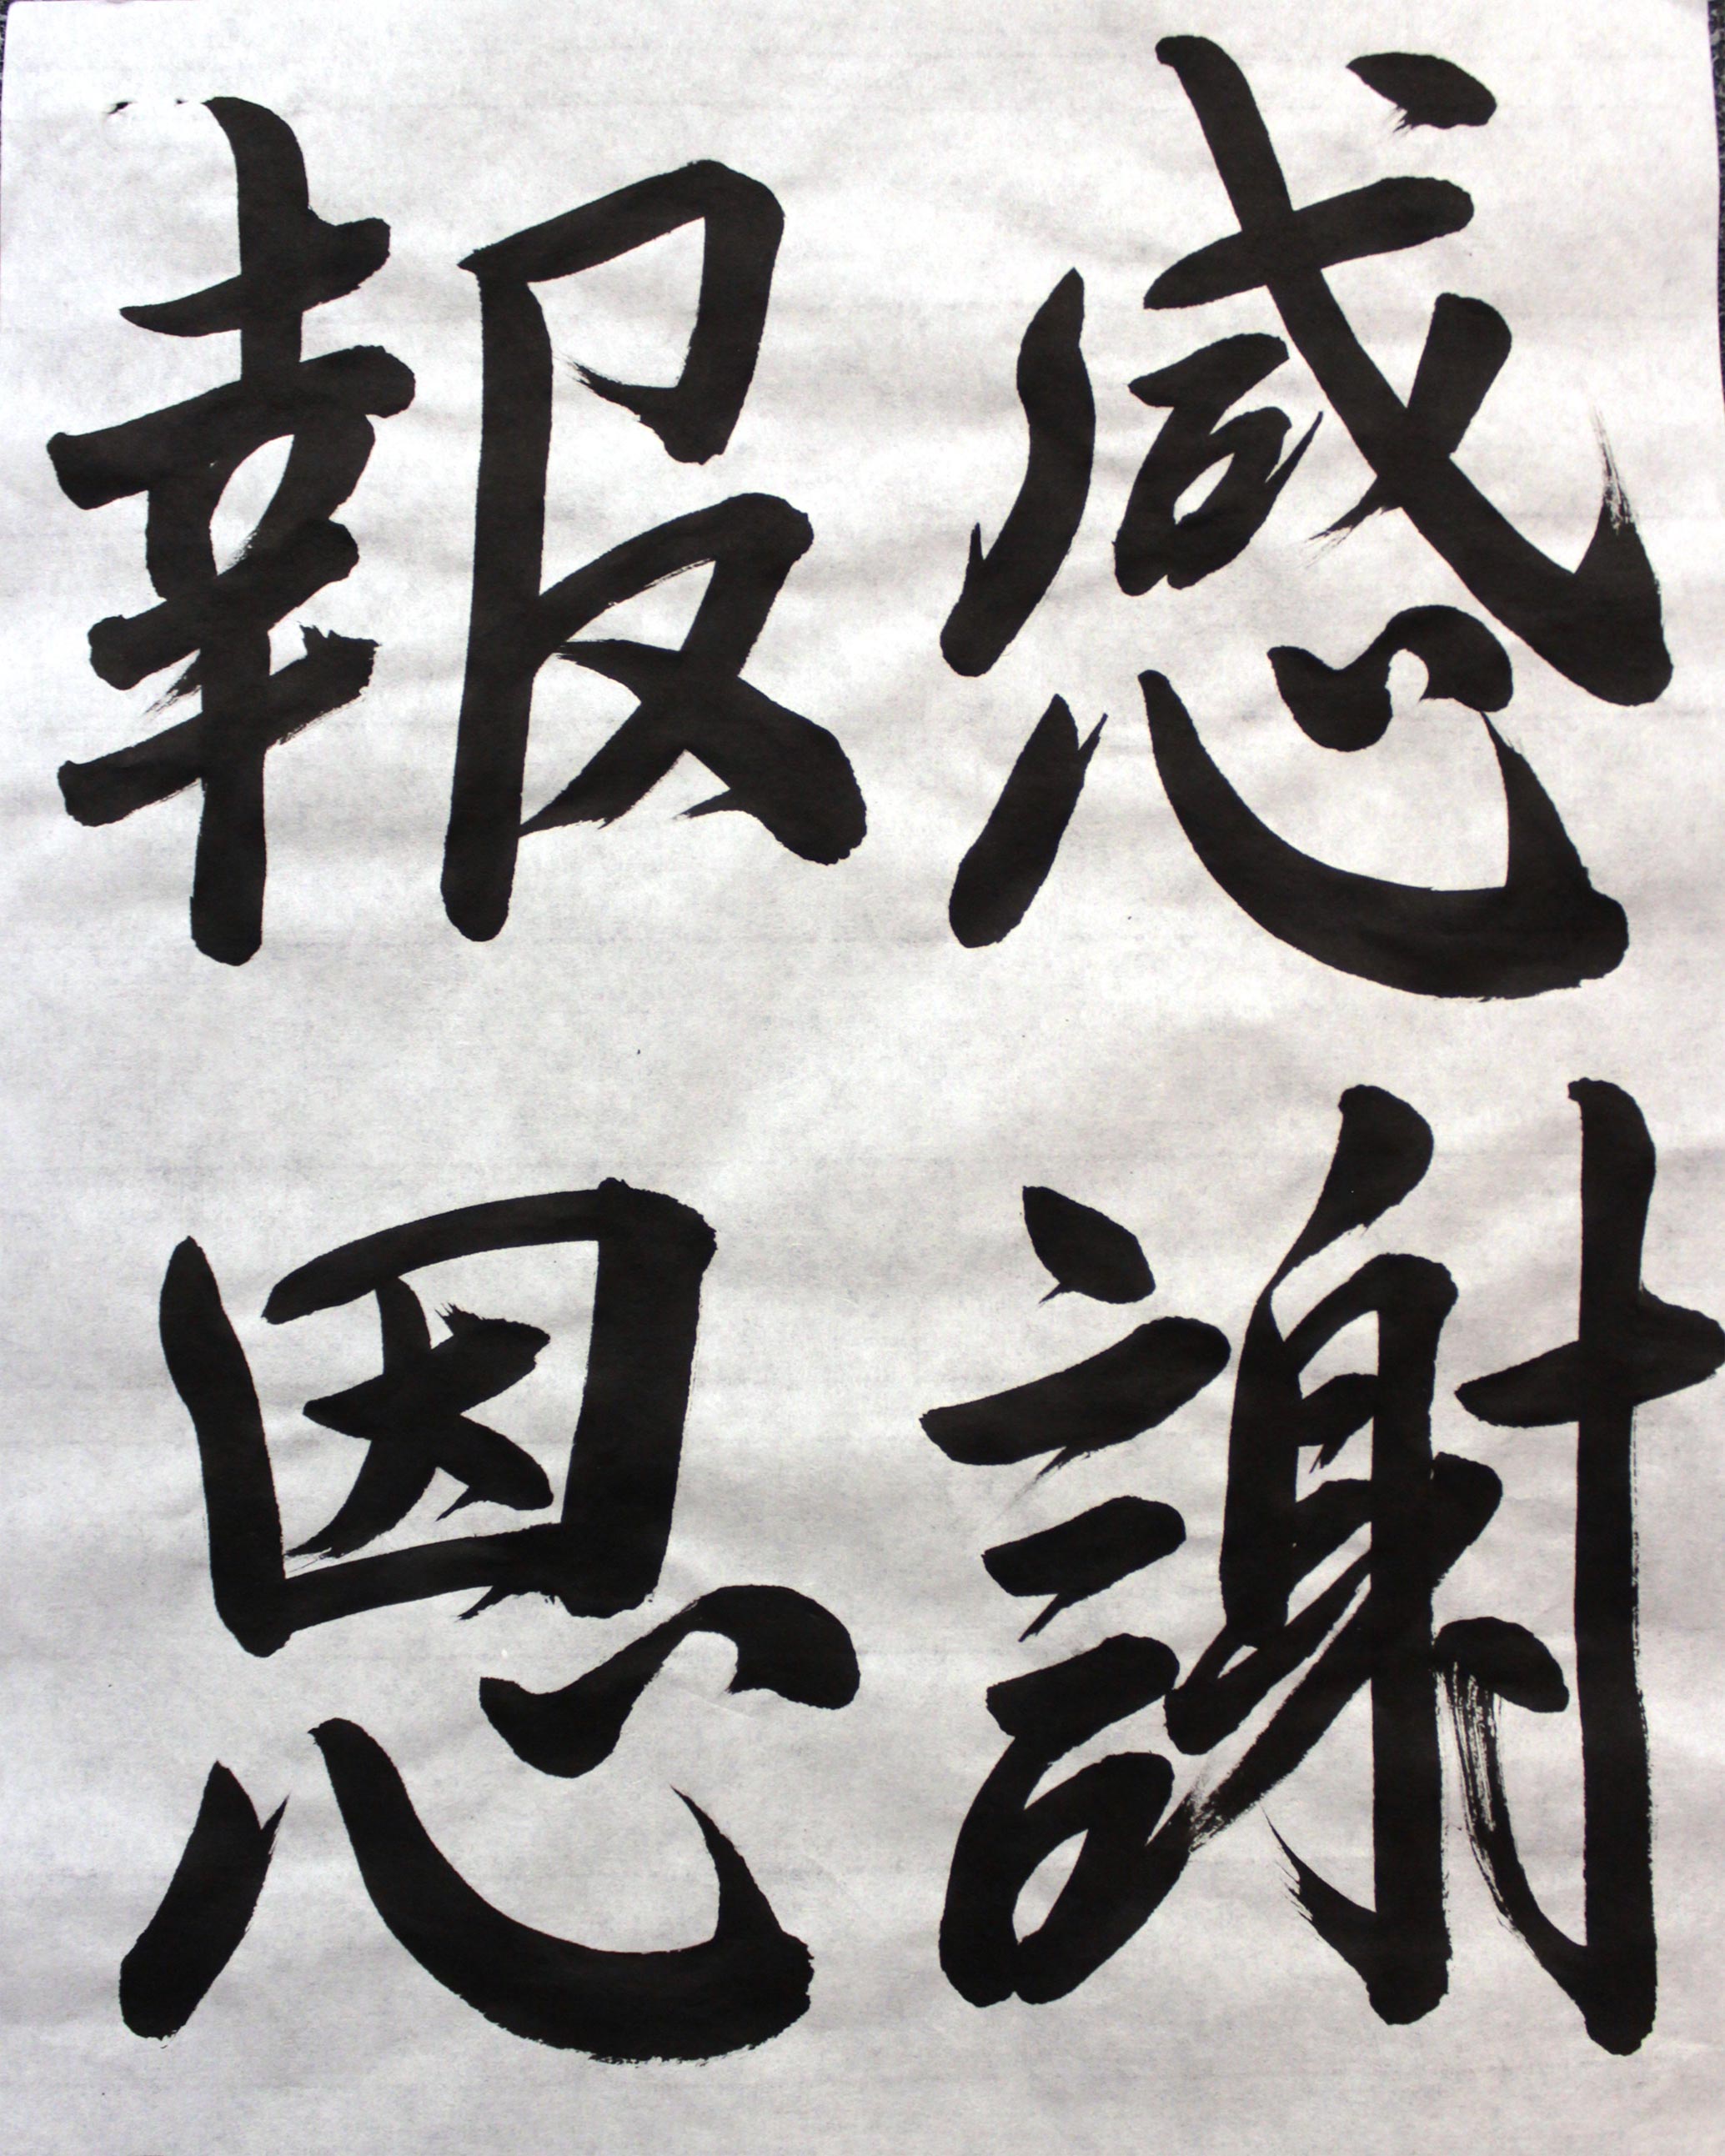 感謝
報恩